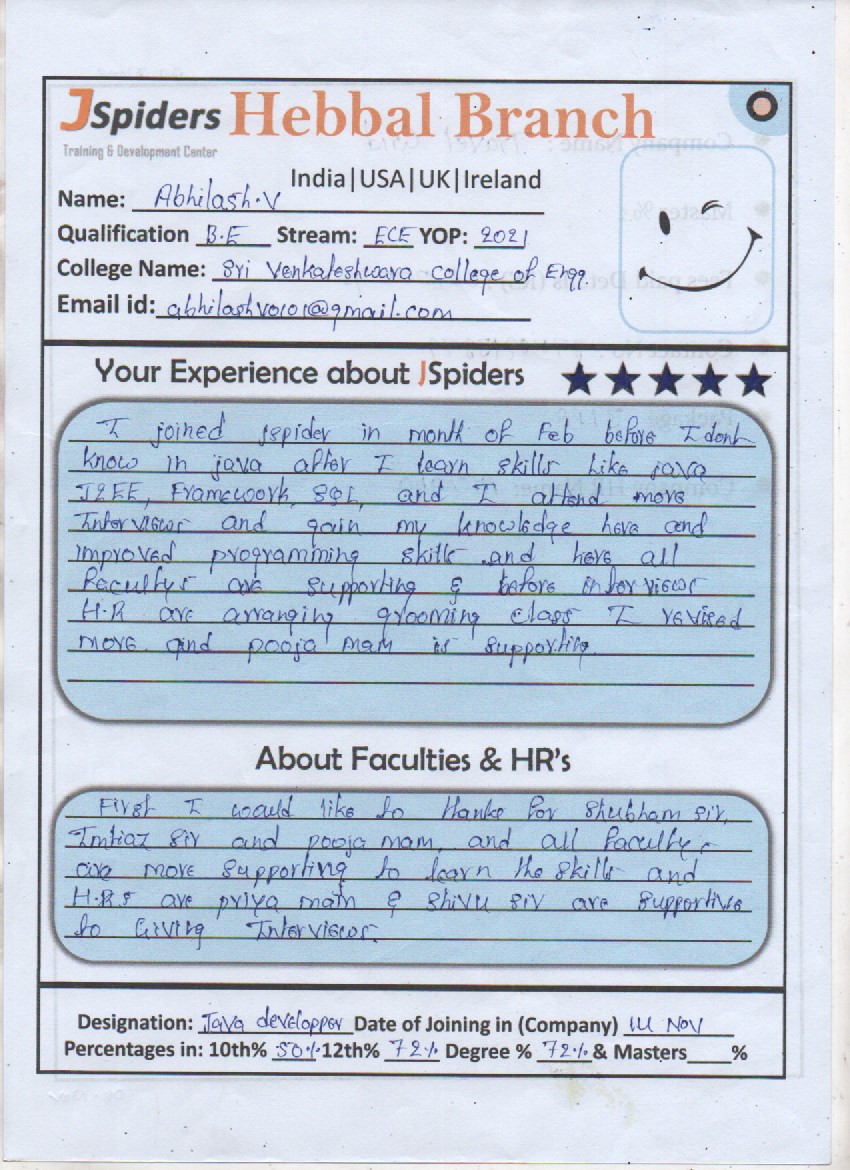 JSpiders Hebbal Branch
Training & Development Center
India|USA|UK|Ireland
Name: Abhilash.V
Qualification B.E Stream: ECE YOP: 2021
College Name: Sri Venkateshwara college of Engg.
Email id: abhilashv0101@gmail.com
Your Experience about JSpiders
I joined jspider in month of Feb before I dont
know in java after I learn skills like java
J2EE, Framework, SQL, and I attend more
Interviews and gain my knowledge here and
improved programming skills and here all
Facultys are supporting & before interviews
H.R are arranging grooming class I revised
more and pooja mam is supporting.
About Faculties & HR's
First I would like to thanks for Shubham sir,
Imtiaz sir and pooja mam, and all Facultys
are more supporting to learn the skills and
H.R.s are priya mam & Shivu sir are supportive
to Giving Interviews.
Designation: Java developper Date of Joining in (Company) 14 Nov
Percentages in: 10th% 50% 12th% 72% Degree % 72% & Masters____%